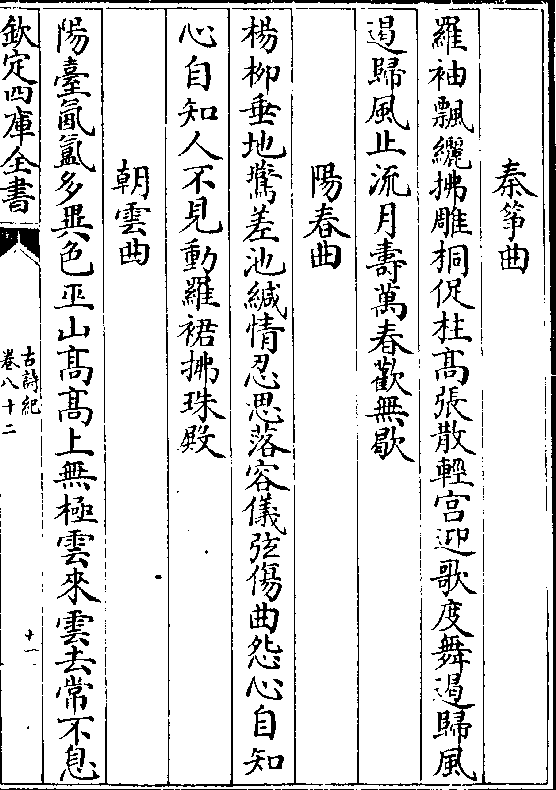 秦筝曲
羅袖飄纚拂雕桐促柱髙張散輕宫迎歌度舞遏歸風
遏歸風止流月壽萬春歡無歇
陽春曲
楊柳垂地鷰差池緘情忍思落容儀弦傷曲怨心自知
心自知人不見動羅裙拂珠殿
朝雲曲
陽臺氤氲多異色巫山髙髙上無極雲來雲去常不息
欽定四庫全書
古詩紀
卷八十二
十一